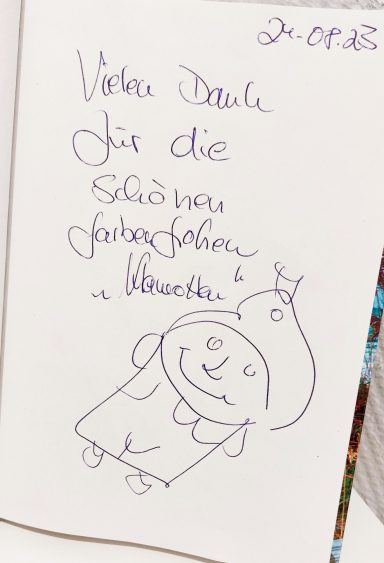 24.08.23
Vielen Dank
für die
schönen
farbenfrohen
„Klamotten"